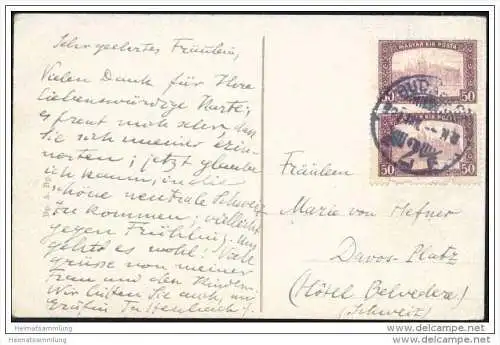 Sehr geehrtes Fräulein,
Vielen Dank für Ihre
liebenswürdige Karte;
es freut mich sehr, dass
Sie sich meiner erin-
; jetzt glaube
ich kaum, in die
schöne neutrale Schweiz
zu kommen; vielleicht
gegen Frühling. Uns
geht es wohl! Viele
Grüsse von meiner
Frau und den Kindern.
Wir bitten Sie auch, an
Gräfin
MAGYAR KIR. POSTA
50 50
BUD
50 50
Fräulein
Marie von Hefner
Davos-Platz
(Hôtel Belvedere)
(Schweiz)
Heimatsammlung
Heimatsammlung